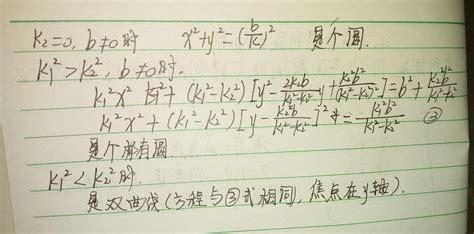 k₂=0, b≠0时 x²+y²=(b/k₁)² 是个圆.
k₁²>k₂², b≠0时.
k₁²x² + (k₁²-k₂²)[y² - 2k₂b/(k₁²-k₂²) y + k₂²b²/(k₁²-k₂²)²] = b² + k₂²b²/(k₁²-k₂²)
k₁²x² + (k₁²-k₂²)[y - k₂b/(k₁²-k₂²)]² = k₁²b²/(k₁²-k₂²) ③
是个椭圆.
k₁²<k₂²时.
是双曲线(方程与③式相同, 焦点在y轴).